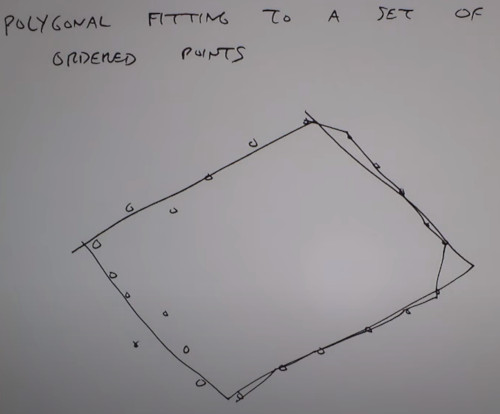 POLYGONAL FITTING TO A SET OF
ORDERED POINTS